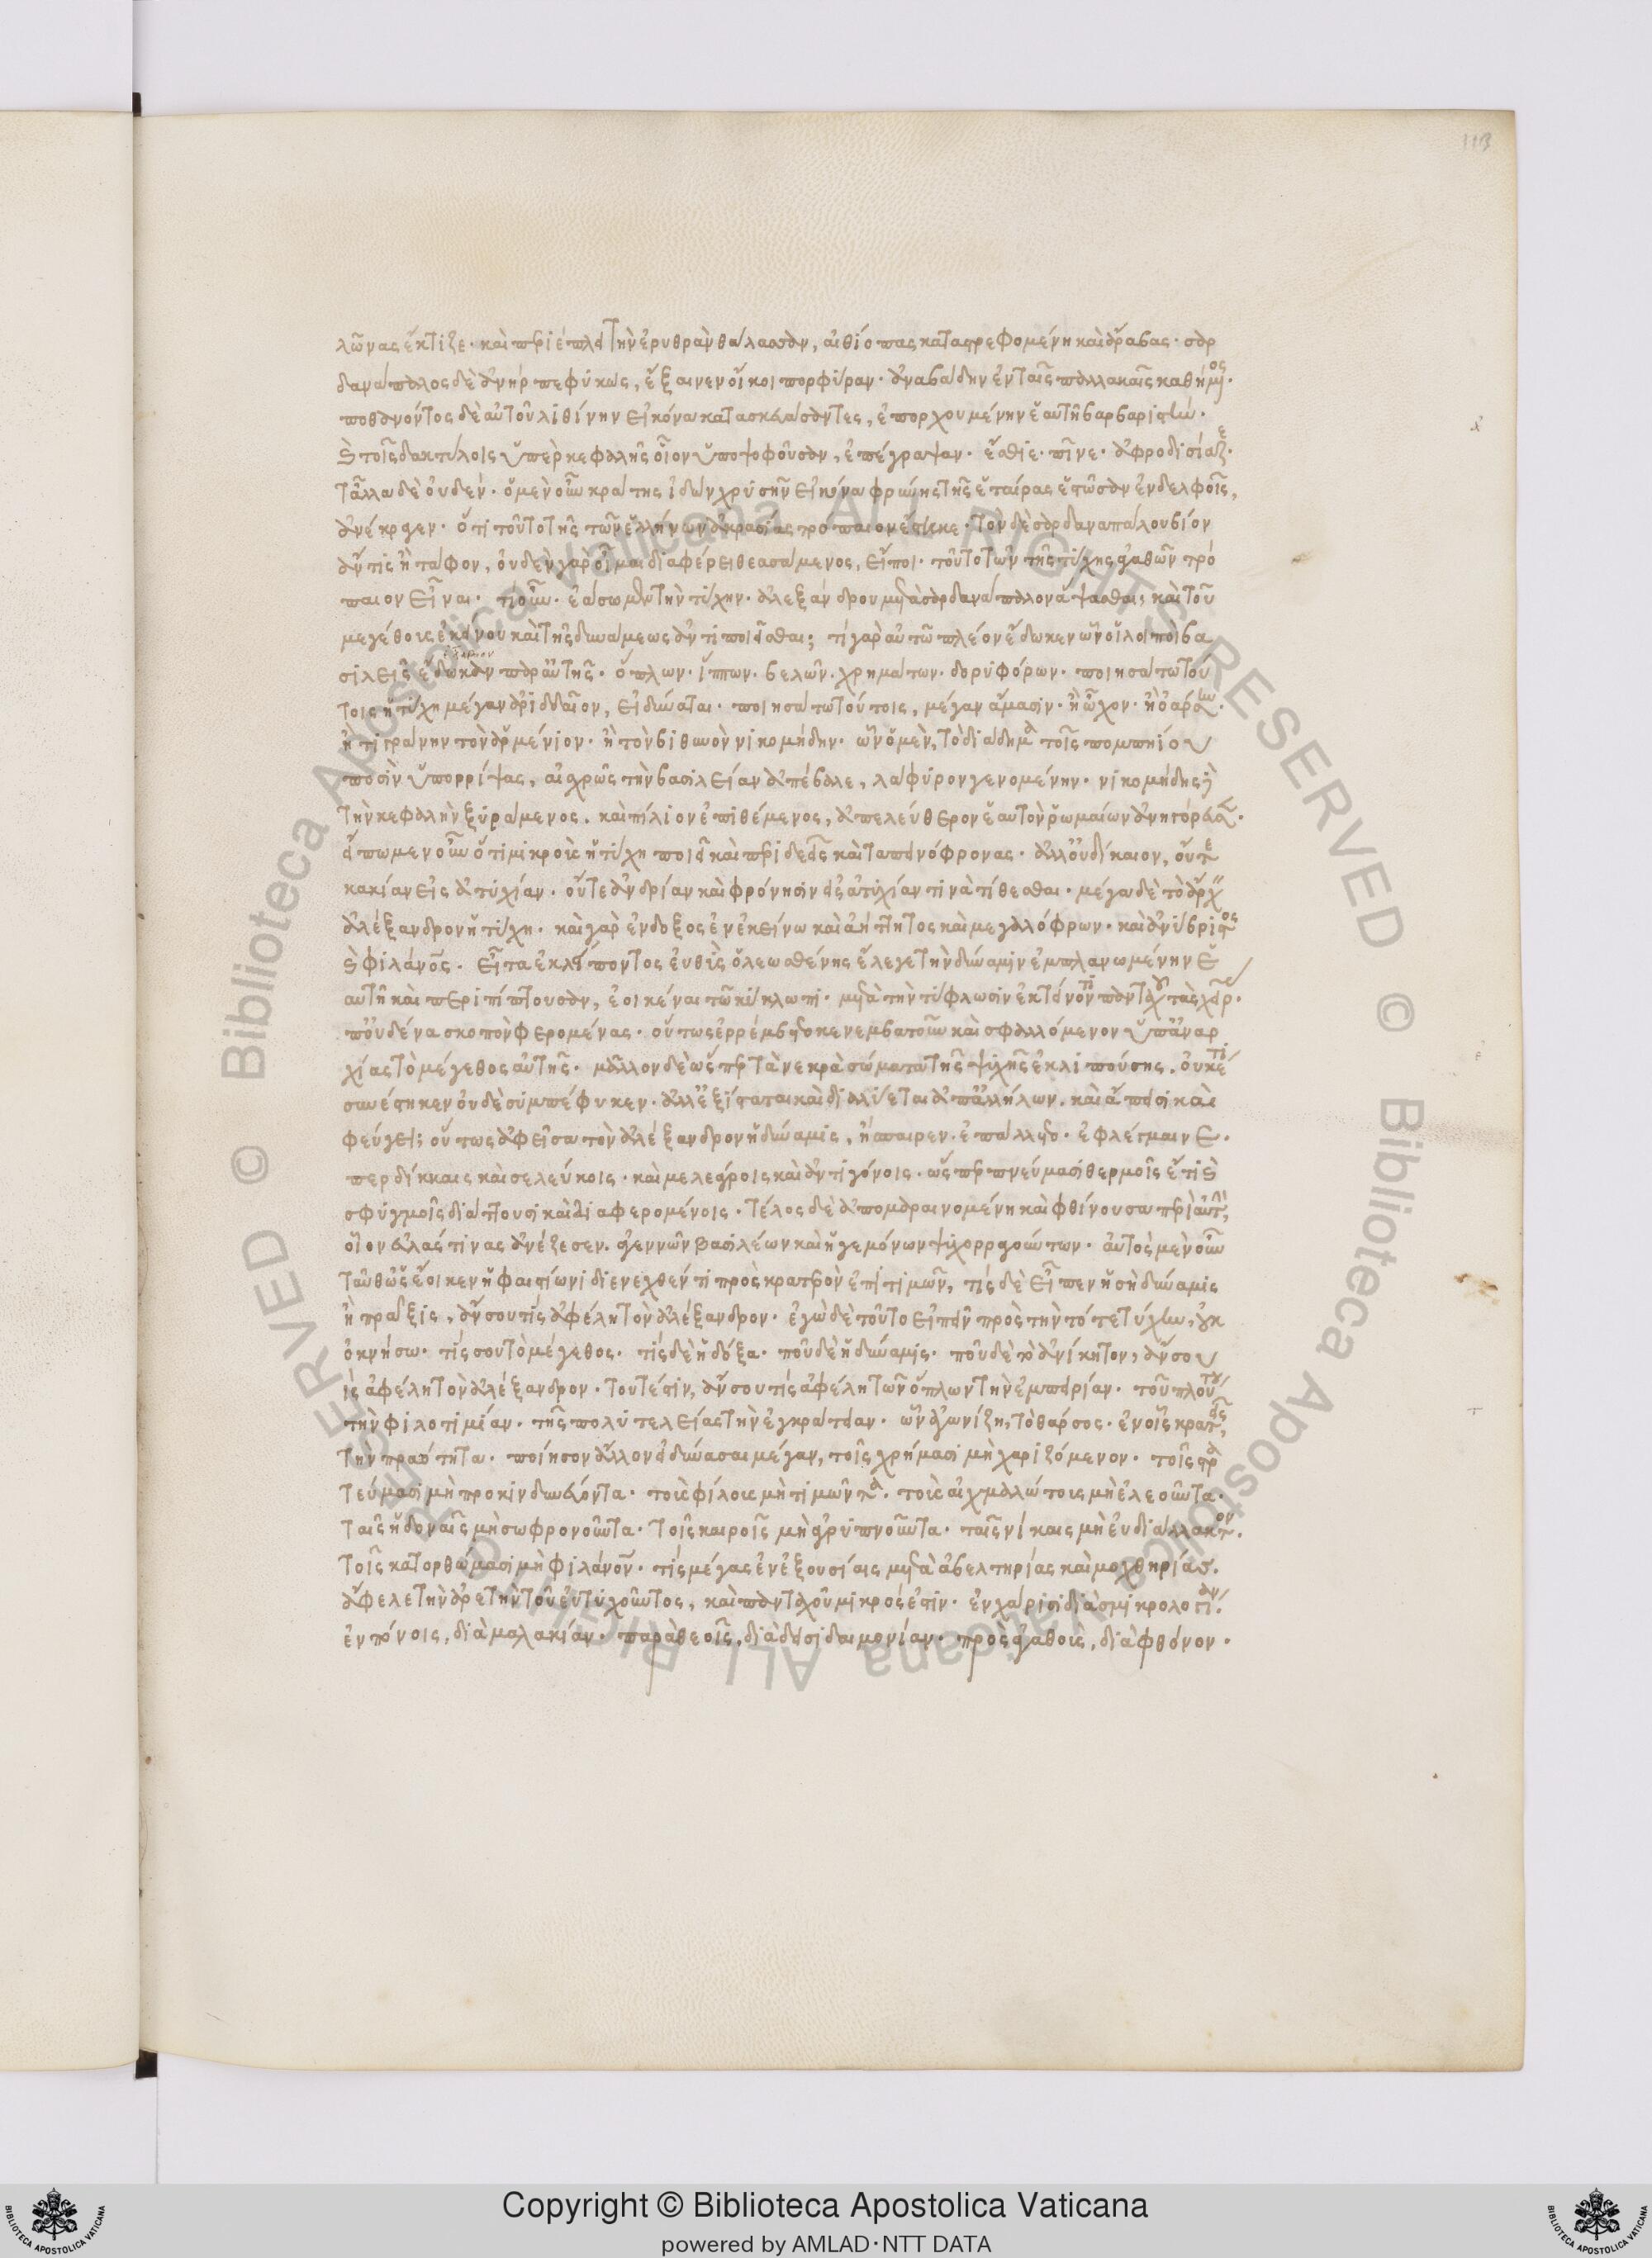 113
λῶνας ἔκτιζε· καὶ περιέπλει τὴν ἐρυθρὰν θάλασσαν, αἰθίοπας καταστρεφομένη καὶ ἄραβας· σαρ
δανάπαλος δὲ ἀνὴρ πεφυκὼς, ἔξαινεν οἴκοι πορφύραν· ἀναβάδην ἐν ταῖς παλλακαῖς καθήμενος·
ποθανόντος δὲ αὐτοῦ λιθίνην εἰκόνα κατασκευάσαντες, ἐπορχουμένην ἑαυτῇ βαρβαριστὶ·
καὶ τοῖς δακτύλοις ὑπὲρ κεφαλῆς οἷον ὑποψοφοῦσαν, ἐπέγραψαν· ἔσθιε· πῖνε· ἀφροδισίαζε·
τἄλλα δὲ οὐδέν· ὁ μὲν οὖν κράτης ἰδὼν χρυσῆν εἰκόνα φρύνης τῆς ἑταίρας ἑστῶσαν ἐν δελφοῖς,
ἀνέκραγεν· ὅτι τοῦτο τῆς τῶν ἑλλήνων ἀκρασίας τρόπαιον ἕστηκε· τὸν δὲ σαρδαναπάλου βίον
ἄν τις ἢ τάφον, οὐδὲν γὰρ οἶμαι διαφέρει θεασάμενος, εἴποι· τοῦτο τῶν τῆς τύχης ἀγαθῶν τρό
παιον εἶναι· τί οὖν· ἐάσωμεν τὴν τύχην· ἀλεξάνδρου μετὰ σαρδανάπαλον ἅψασθαι; καὶ τοῦ
μεγέθους ἐκείνου καὶ τῆς δυνάμεως ἀντιποιεῖσθαι; τί γὰρ αὐτῶ πλέον ἔδωκεν ὧν οἱ λοιποὶ βα
σιλεῖς ἔδωκαν παρ' αὐτῆς· ὅπλων· ἵππων· βελῶν· χρημάτων· δορυφόρων· ποιησάτω τού
τοις ἡ τύχη μέγαν ἀριδαῖον, εἰ δύναται· ποιησάτω τούτοις, μέγαν ἄμασιν· ἢ ὦχον· ἢ ὀάρσην·
ἢ τιγράνην τὸν ἀρμένιον· ἢ τὸν βιθυνὸν νικομήδην· ὧν ὁ μὲν, τὸ διάδημα τοῖς πομπηίου
ποσὶν ὑπορρίψας, αἰσχρῶς τὴν βασιλείαν ἀπέβαλε, λάφυρον γενομένην· νικομήδης δὲ
τὴν κεφαλὴν ξυράμενος· καὶ πίλιον ἐπιθέμενος, ἀπελεύθερον ἑαυτὸν ῥωμαίων ἀνηγόρευσεν·
εἴπωμεν οὖν ὅτι μικροὺς ἡ τύχη ποιεῖ καὶ περιδεεῖς καὶ ταπεινόφρονας· ἀλλ' οὐ δίκαιον, οὔτε
κακίαν εἰς ἀτυχίαν· οὔτε ἀνδρίαν καὶ φρόνησιν εἰς εὐτυχίαν τινὰ τίθεσθαι· μέγα δὲ τὸ ἄρχειν
ἀλέξανδρον ἡ τύχη· καὶ γὰρ ἔνδοξος ἐν ἐκείνω καὶ ἀήττητος καὶ μεγαλόφρων· καὶ ἀνύβριστος
καὶ φιλάνθρωπος· εἶτα ἐκλιπόντος εὐθὺς ὁ λεωσθένης ἔλεγε τὴν δύναμιν ἐμπλανωμένην ἑ
αυτῇ καὶ περιπίπτουσαν, ἐοικέναι τῶ κύκλωπι· μετὰ τὴν τύφλωσιν ἐκτείνοντι πανταχοῦ τὰς χεῖρας·
πρὸς οὐδένα σκοπὸν φερομένας· οὕτως ἐρρέμβετο κενεμβατοῦν καὶ σφαλλόμενον ὑπ' ἀναρ
χίας τὸ μέγεθος αὐτῆς· μᾶλλον δὲ ὥσπερ τὰ νεκρὰ σώματα τῆς ψυχῆς ἐκλιπούσης, οὐκέτι
συνέστηκεν οὐδὲ συμπέφυκεν· ἀλλ' ἐξίσταται καὶ διαλύεται ἀπ' ἀλλήλων· καὶ ἄπεισι καὶ
φεύγει; οὕτως ἀφεῖσα τὸν ἀλέξανδρον ἡ δύναμις, ἤσπαιρεν· ἐπάλλετο· ἐφλέγμαινε·
περδίκκαις καὶ σελεύκοις· καὶ μελεάγροις καὶ ἀντιγόνοις· ὥσπερ πνεύμασι θερμοῖς ἔτι καὶ
σφυγμοῖς διάττουσι καὶ διαφερομένοις· τέλος δὲ ἀπομαραινομένη καὶ φθίνουσα περὶ αὑτὴν,
οἷον εὐλάς τινας ἀνέζεσεν· ἀγεννῶν βασιλέων καὶ ἡγεμόνων ψυχορραγούντων· αὐτὸς μὲν οὖν
ταῦθ' ὡς ἔοικεν ἡφαιστίωνι διενεχθέντι πρὸς κρατερὸν ἐπιτιμῶν, τίς δὲ εἶπεν ἡ σὴ δύναμις
ἢ πρᾶξις, ἄν σού τις ἀφέλη τὸν ἀλέξανδρον· ἐγὼ δὲ τοῦτο εἰπεῖν πρὸς τὴν τότε τύχην, οὐκ
ὀκνήσω· τίς σου τὸ μέγεθος· τίς δὲ ἡ δόξα· ποῦ δὲ ἡ δύναμις· ποῦ δὲ τὸ ἀνίκητον, ἄν σου
τις ἀφέλη τὸν ἀλέξανδρον· τουτέστιν, ἄν σού τις ἀφέλη τῶν ὅπλων τὴν ἐμπειρίαν· τοῦ πλούτου
τὴν φιλοτιμίαν· τῆς πολυτελείας τὴν ἐγκράτειαν· ὧν ἀγωνίζη, τὸ θάρσος· ἐν οἷς κρατεῖς,
τὴν πραότητα· ποίησον ἄλλον εἰ δύνασαι μέγαν, τοῖς χρήμασι μὴ χαριζόμενον· τοῖς στρα
τεύμασι μὴ προκινδυνεύοντα· τοὺς φίλους μὴ τιμῶντα· τοὺς αἰχμαλώτους μὴ ἐλεοῦντα·
ταῖς ἡδοναῖς μὴ σωφρονοῦντα· τοῖς καιροῖς μὴ ἀγρυπνοῦντα· ταῖς νίκαις μὴ εὐδιάλλακτον·
τοῖς κατορθώμασι μὴ φιλάνθρωπον· τίς μέγας ἐν ἐξουσίαις μετὰ ἀβελτηρίας καὶ μοχθηρίας·
ἄφελε τὴν ἀρετὴν τοῦ εὐτυχοῦντος, καὶ πανταχοῦ μικρός ἐστιν· ἐν χάρισι διὰ σμικρολογίαν·
ἐν πόνοις, διὰ μαλακίαν· παρὰ θεοῖς, διὰ δεισιδαιμονίαν· πρὸς ἀγαθοὺς, διὰ φθόνον·
Copyright © Biblioteca Apostolica Vaticana
powered by AMLAD·NTT DATA